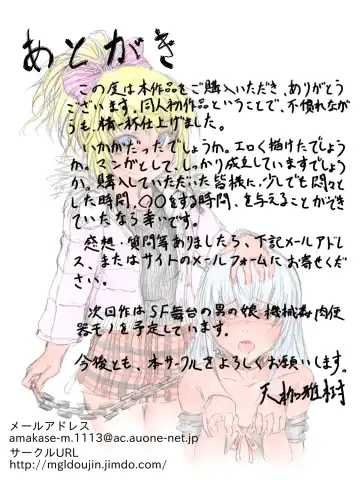 あとがき
この度は本作品をご購入いただき、ありがとう
ございます。同人初作品ということで、不慣れなが
らも、精一杯仕上げました。
いかがだったでしょうか。エロく描けたでしょう
か。マンガとして、しっかり成立していますでしょう
か。購入していただいた皆様に、少しでも悶々と
した時間、〇〇をする時間、を与えることができ
ていたなら幸いです。
感想・質問等ありましたら、下記メールアドレ
ス、またはサイトのメールフォームにお寄せくだ
さい。
次回作はSF舞台の男の娘機械姦肉便
器モノを予定しています。
今後とも、本サークルをよろしくお願いします。
天枷雅樹
メールアドレス
amakase-m.1113@ac.auone-net.jp
サークルURL
http://mgldoujin.jimdo.com/